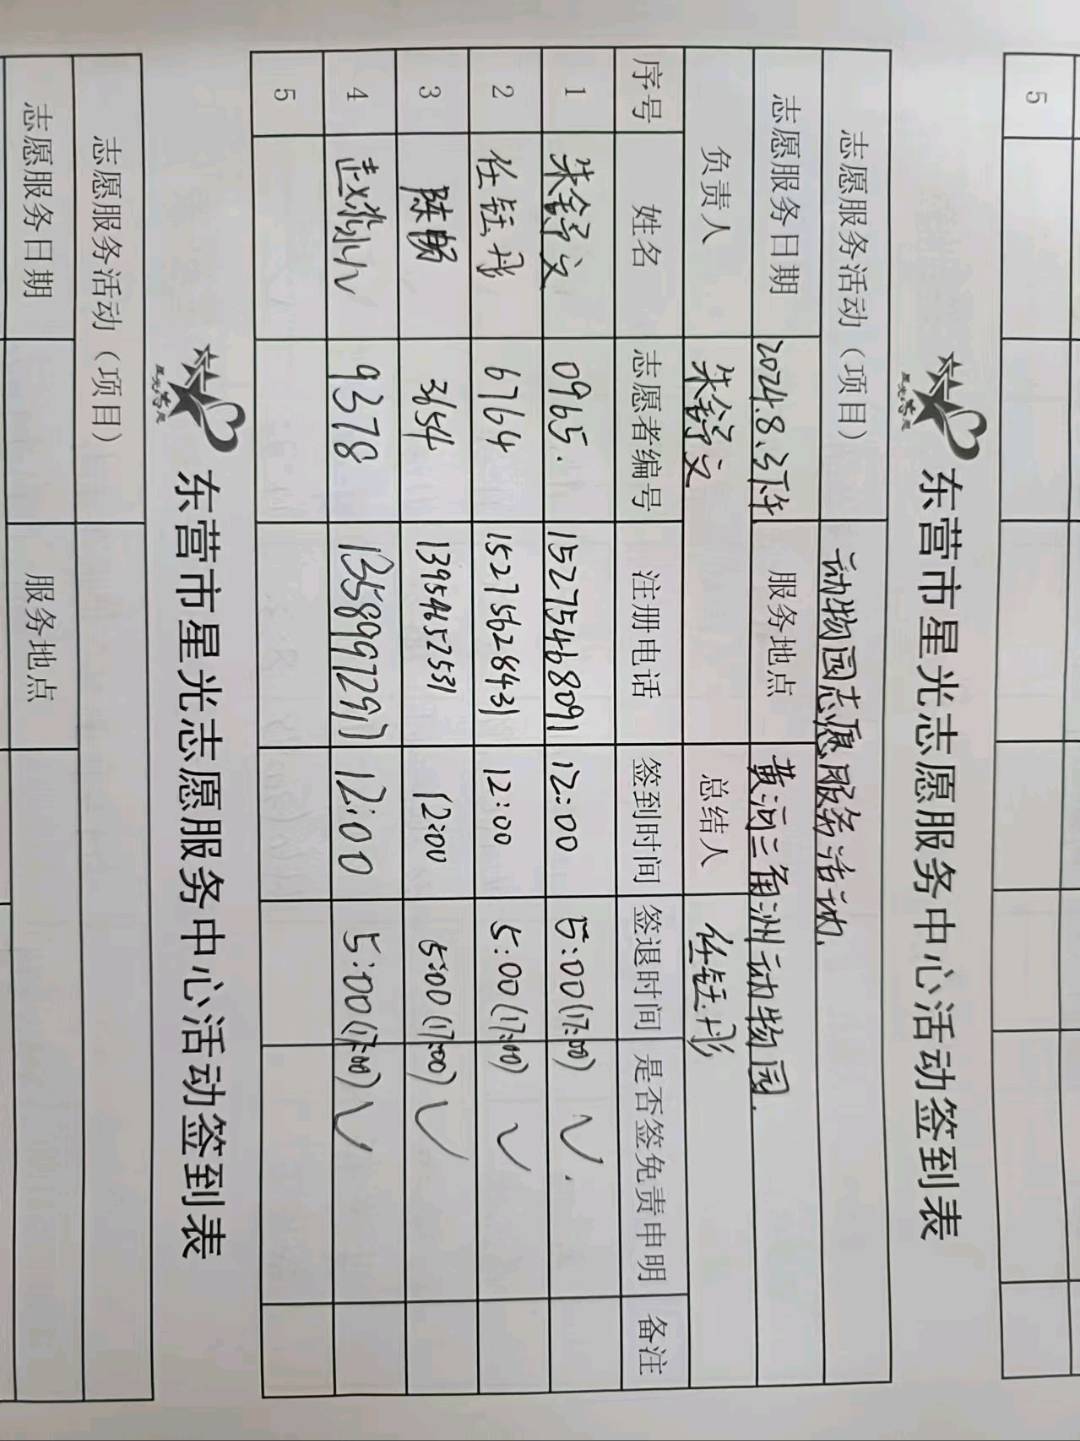 5
东营市星光志愿服务中心活动签到表
志愿服务活动（项目） 动物园志愿服务活动.
志愿服务日期 2024.8.3下午 服务地点 黄河三角洲动物园.
负责人 朱舒文 总结人 任钰彤
序号 姓名 志愿者编号 注册电话 签到时间 签退时间 是否签免责申明 备注
1 朱舒文 0965. 15275468091 12:00 5:00(17:00) ✓.
2 任钰彤 6764 15275628431 12:00 5:00(17:00) ✓
3 陈畅 3654 13954652531 12:00 5:00(17:00) ✓
4 赵 9378 13589972917 12:00 5:00(17:00) ✓
5
东营市星光志愿服务中心活动签到表
志愿服务活动（项目）
志愿服务日期 服务地点